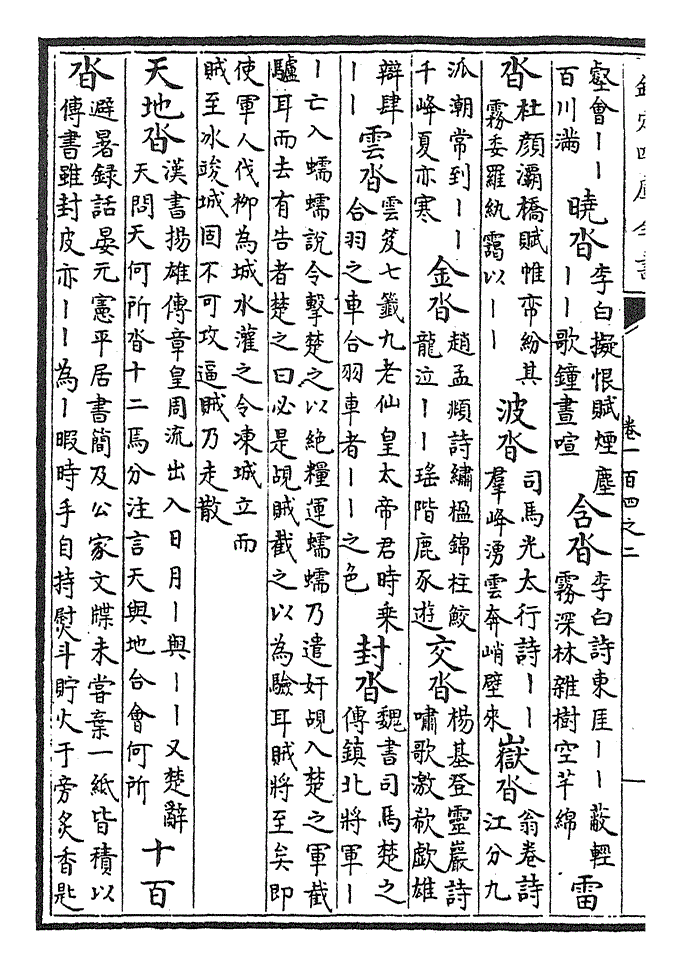 欽定四庫全書
卷一百四之二
壑會丨丨
百川滿
曉沓
李白擬恨賦煙塵
丨丨歌鐘晝喧
含沓
李白詩東厓丨丨蔽輕
霧深林雜樹空芊綿
雷
沓
杜頠灞橋賦帷帟紛其
霧委羅紈靄以丨丨
波沓
司馬光太行詩丨丨
羣峰湧雲奔峭壁來
嶽沓
翁卷詩
江分九
派潮常到丨丨
千峰夏亦寒
金沓
趙孟頫詩繡楹錦柱鮫
龍泣丨丨瑤階鹿豕遊
交沓
楊基登靈巖詩
嘯歌激欷歔雄
辯肆
丨丨
雲沓
雲笈七籤九老仙皇太帝君時乗
合羽之車合羽車者丨丨之色
封沓
魏書司馬楚之
傳鎮北將軍丨
丨亡入蠕蠕說令擊楚之以絕糧運蠕蠕乃遣奸覘入楚之軍截
驢耳而去有告者楚之曰必是覘賊截之以為驗耳賊將至矣即
使軍人伐柳為城水灌之令凍城立而
賊至冰峻城固不可攻逼賊乃走散
天地沓
漢書揚雄傳章皇周流出入日月丨與丨丨又楚辭
天問天何所沓十二焉分注言天與地合會何所
十百
沓
避暑録話晏元憲平居書簡及公家文牒未嘗棄一紙皆積以
傳書雖封皮亦丨丨為丨暇時手自持熨斗貯火于旁炙香匙